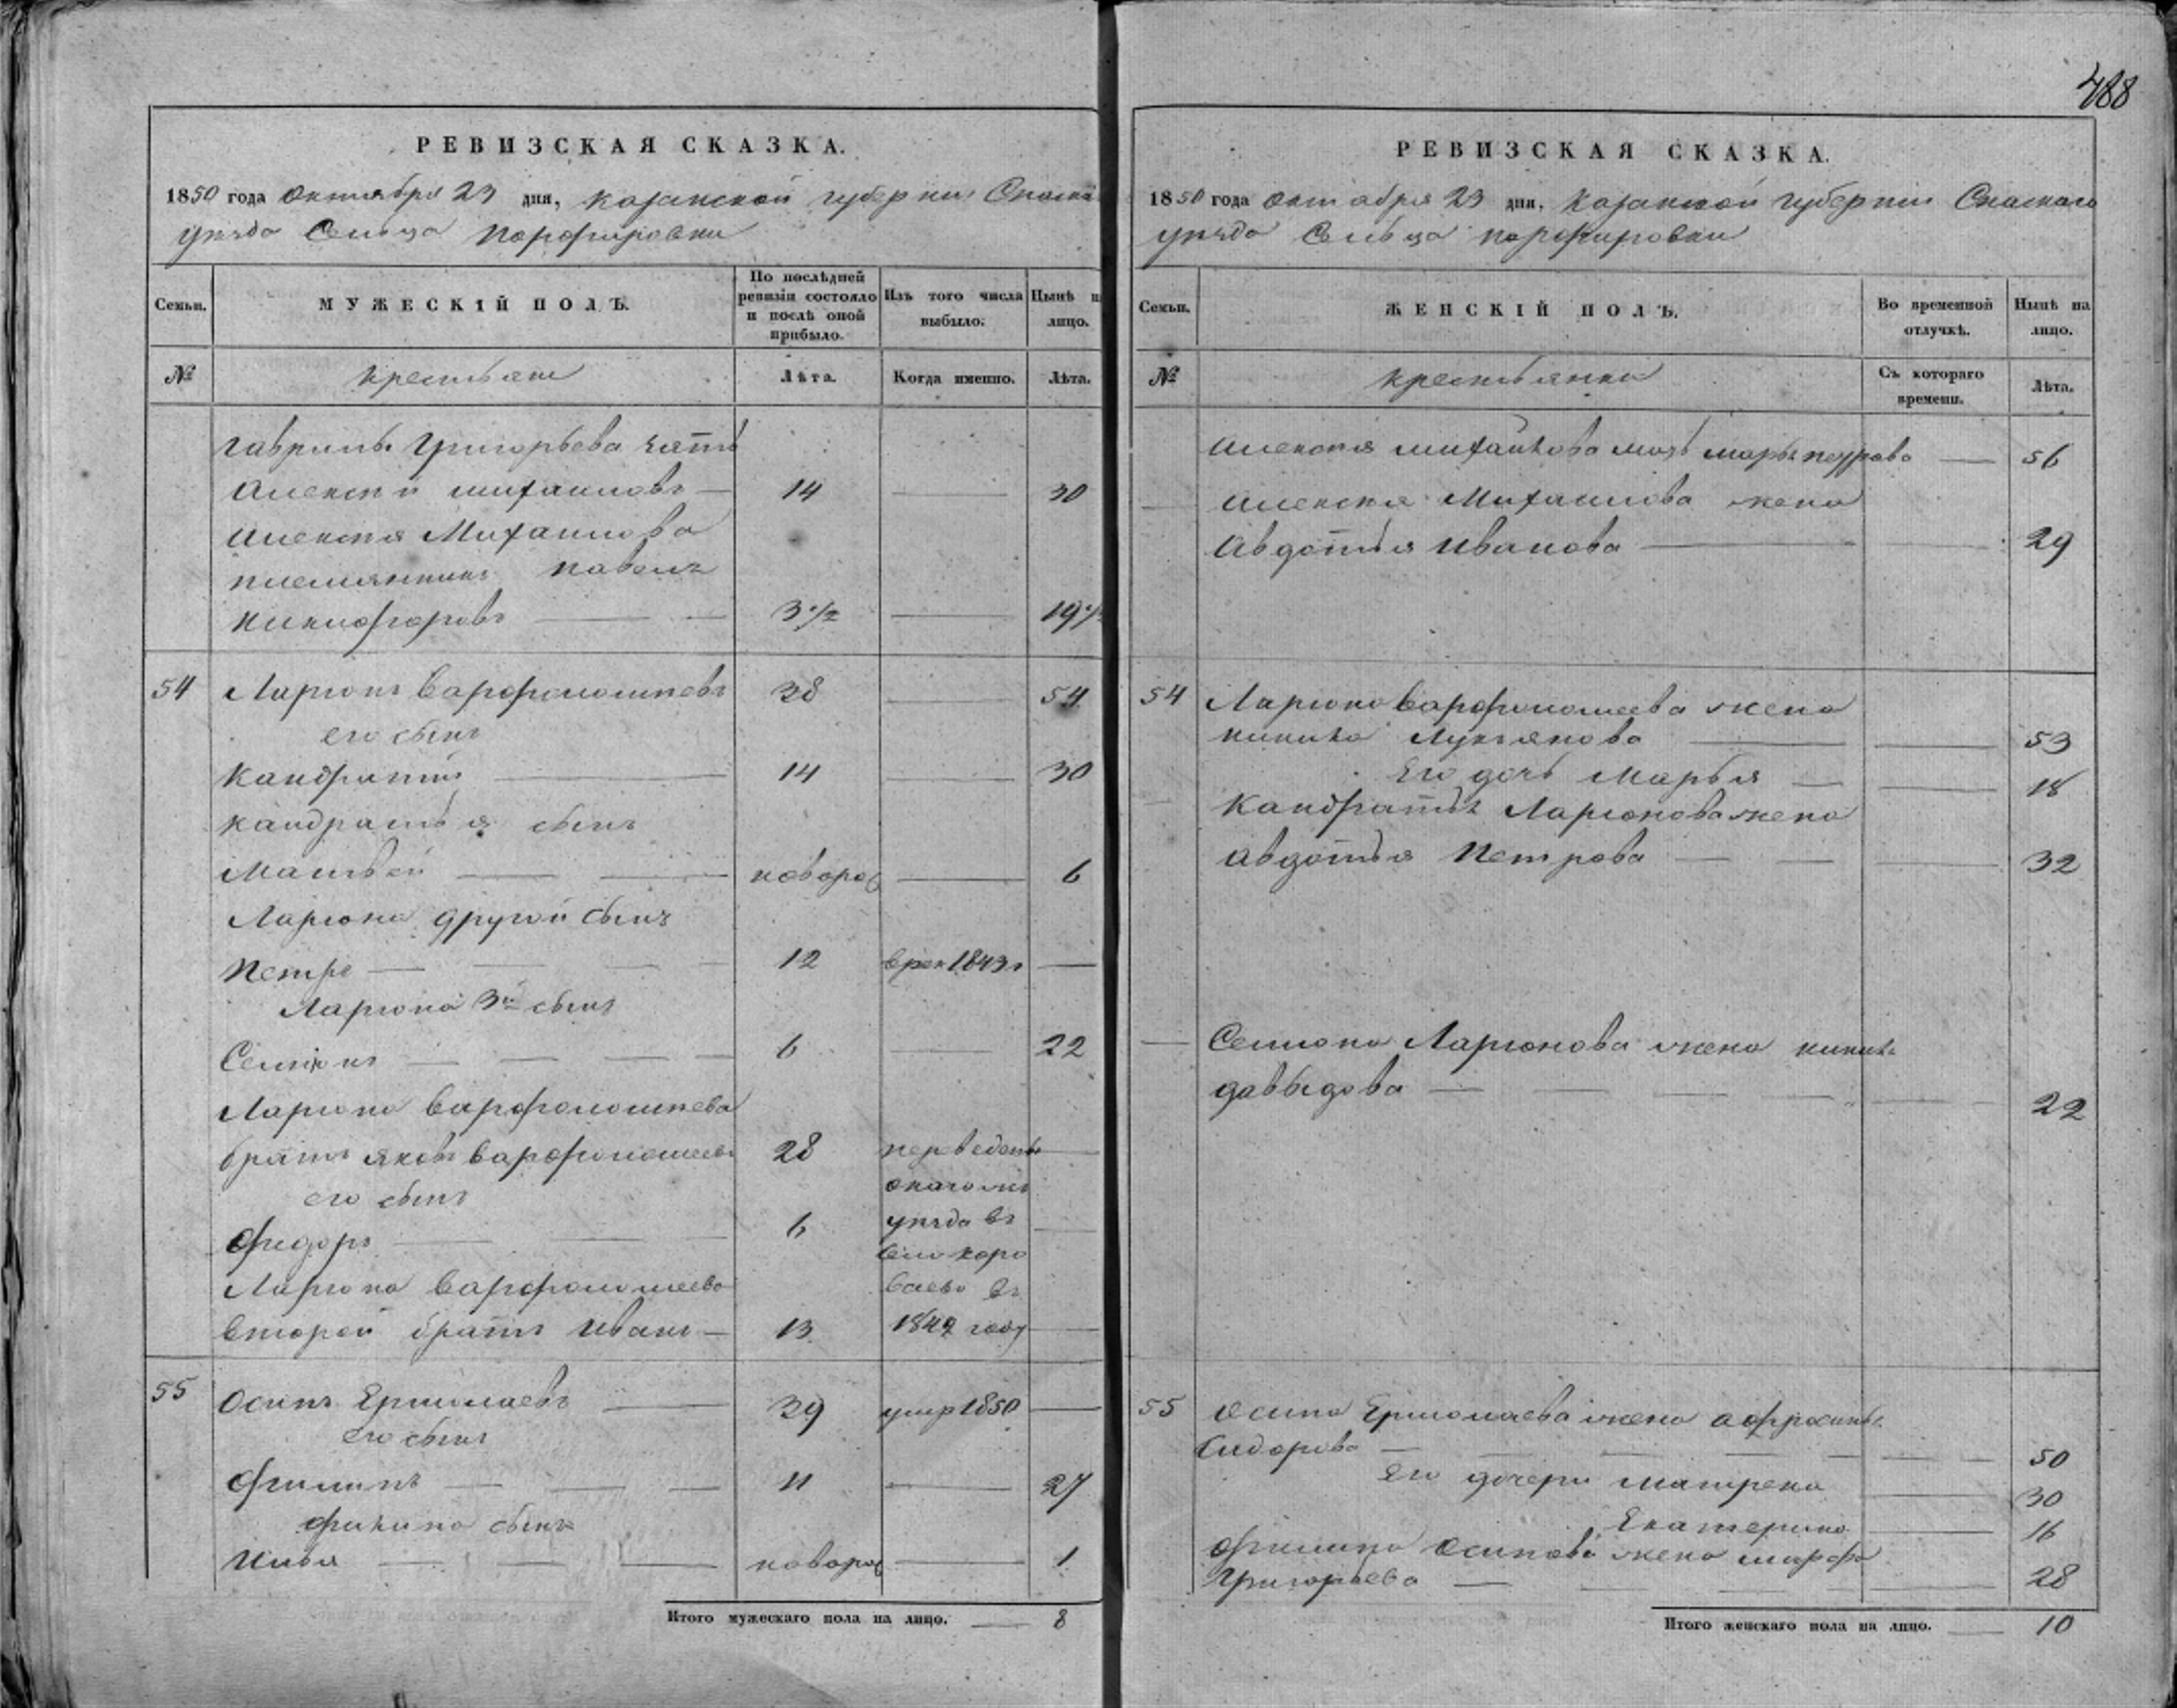 488
РЕВИЗСКАЯ СКАЗКА.
1850 года октября 23 дня, казанской губернии Спаска
уезда Сельца Порфировки
Семьи. МУЖЕСКІЙ ПОЛЪ. По послѣдней ревизіи состояло и послѣ оной прибыло. Изъ того числа выбыло. Нынѣ н лицо.
№ крестьяне Лѣта. Когда именно. Лѣта.
Гаврилы Григорьева зять
Алексѣй михаиловъ — 14 — 30
Алексея Михаилова
племянникъ Павелъ
Никифоровъ — 3 1/2 — 19 1/2
54 Ларионъ Варфоломѣевъ 38 — 54
его сынъ
Кандратий — 14 — 30
Кандратья сынъ
Матвей — новорож — 6
Лариона другой сынъ
Петръ — 12 в рек 1843 г —
Лариона 3й сынъ
Семионъ — 6 — 22
Лариона Варфоломѣева
братъ яковъ Варфоломеевъ 28 переведенъ —
его сынъ онаго же
Федоръ — 6 уезда въ —
село коро
Лариона Варфоломеева баево въ
второй братъ Иванъ — 13 1842 году —
55 Осипъ Ермолаевъ — 39 умер 1850 —
его сынъ
Филипъ — 11 — 27
филипа сынъ
Илья — новорож — 1
Итого мужескаго пола на лицо. — 8
РЕВИЗСКАЯ СКАЗКА.
1850 года октября 23 дня, казанской губернии Спаскаго
уезда Сельца порфировки
Семьи. ЖЕНСКІЙ ПОЛЪ. Во временной отлучкѣ. Нынѣ на лицо.
№ крестьянки Съ котораго времени. Лѣта.
Алексея михайлова мать марья петрова — 56
Алексея Михаилова жена
Авдотья Иванова — 29
54 Лариона Варфоломеева жена
Лукьянова — 53
Его дочь Марья — 18
Кандратья Ларионова жена
Авдотья Петрова — 32
Семиона Ларионова жена
давыдова — 22
55 Осипа Ермолаева жена афросинья
Сидорова — 50
Его дочери матрена — 30
Екатерина — 16
Филипа Осипова жена марфа
Григорьева — 28
Итого женскаго пола на лицо. — 10